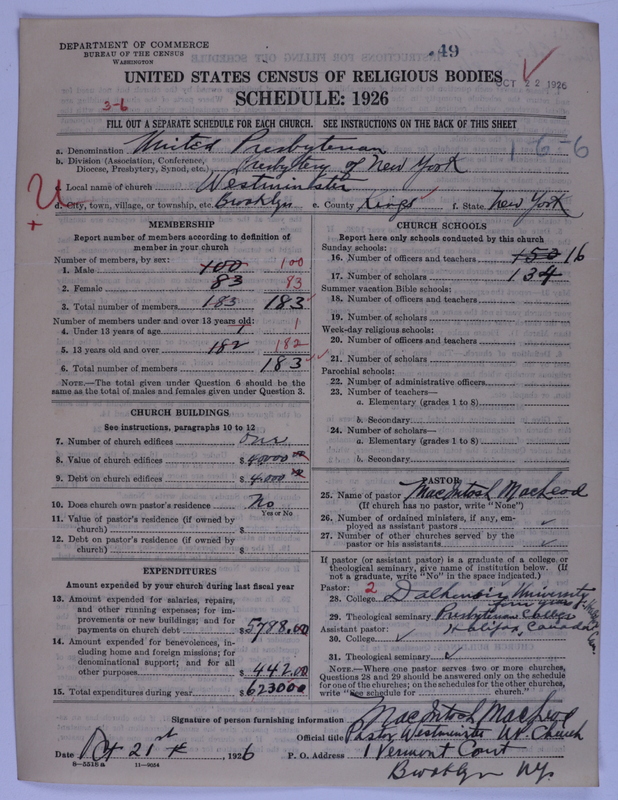 DEPARTMENT OF COMMERCE
BUREAU OF THE CENSUS
WASHINGTON
49
UNITED STATES CENSUS OF RELIGIOUS BODIES
OCT 22 1926
SCHEDULE: 1926
3-6
FILL OUT A SEPARATE SCHEDULE FOR EACH CHURCH. SEE INSTRUCTIONS ON THE BACK OF THIS SHEET
a. Denomination United Presbyterian
1-6-6
b. Division (Association, Conference, Diocese, Presbytery, Synod, etc.) Presbytery of New York
c. Local name of church Westminster
d. City, town, village, or township, etc. Brooklyn e. County Kings f. State New York
MEMBERSHIP
Report number of members according to definition of member in your church
Number of members, by sex:
1. Male 100 100
2. Female 83 83
3. Total number of members 183 183
Number of members under and over 13 years old:
4. Under 13 years of age 1 1
5. 13 years old and over 182 182
6. Total number of members 183
NOTE.—The total given under Question 6 should be the same as the total of males and females given under Question 3.
CHURCH BUILDINGS
See instructions, paragraphs 10 to 12
7. Number of church edifices one
8. Value of church edifices $
9. Debt on church edifices $ 4,000 00
10. Does church own pastor's residence? No
Yes or No
11. Value of pastor's residence (if owned by church) $
12. Debt on pastor's residence (if owned by church) $
EXPENDITURES
Amount expended by your church during last fiscal year
13. Amount expended for salaries, repairs, and other running expenses; for improvements or new buildings; and for payments on church debt $ 5788.00
14. Amount expended for benevolences, including home and foreign missions; for denominational support; and for all other purposes $ 442.00
15. Total expenditures during year $ 6230 00
CHURCH SCHOOLS
Report here only schools conducted by this church
Sunday schools:
16. Number of officers and teachers 150 16
17. Number of scholars 134
Summer vacation Bible schools:
18. Number of officers and teachers
19. Number of scholars
Week-day religious schools:
20. Number of officers and teachers
21. Number of scholars
Parochial schools:
22. Number of administrative officers
23. Number of teachers—
a. Elementary (grades 1 to 8)
b. Secondary
24. Number of scholars—
a. Elementary (grades 1 to 8)
b. Secondary
PASTOR
25. Name of pastor MacIntosh MacLeod
(If church has no pastor, write "None")
26. Number of ordained ministers, if any, employed as assistant pastors ✓
27. Number of other churches served by the pastor or his assistants ✓
If pastor (or assistant pastor) is a graduate of a college or theological seminary, give name of institution below. (If not a graduate, write "No" in the space indicated.)
Pastor: 2
28. College Dalhousie University
four years
29. Theological seminary Presbyterian College
Halifax, Canada
Assistant pastor:
30. College ✓
31. Theological seminary ✓
NOTE.—Where one pastor serves two or more churches, Questions 28 and 29 should be answered only on the schedule for one of the churches; on the schedules for the other churches, write "See schedule for church."
Signature of person furnishing information MacIntosh MacLeod
Official title Pastor Westminster U.P. Church
Date Oct 21st, 1926 P. O. Address 1 Vermont Court
Brooklyn N.Y.
8-5518 a 11-9084